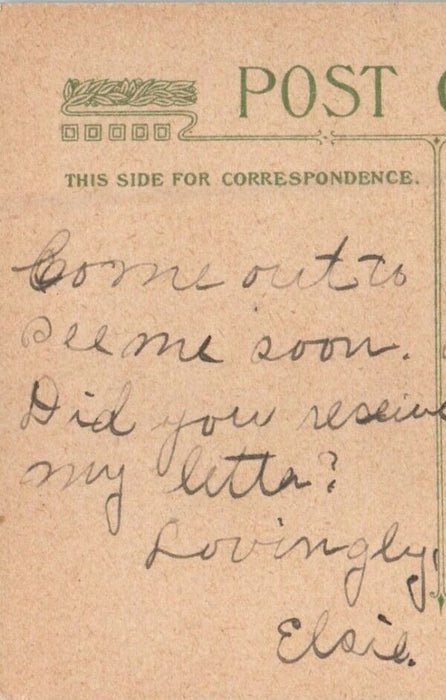 POST C
THIS SIDE FOR CORRESPONDENCE.
Come out to
see me soon.
Did you receive
my letter?
Lovingly,
Elsie.